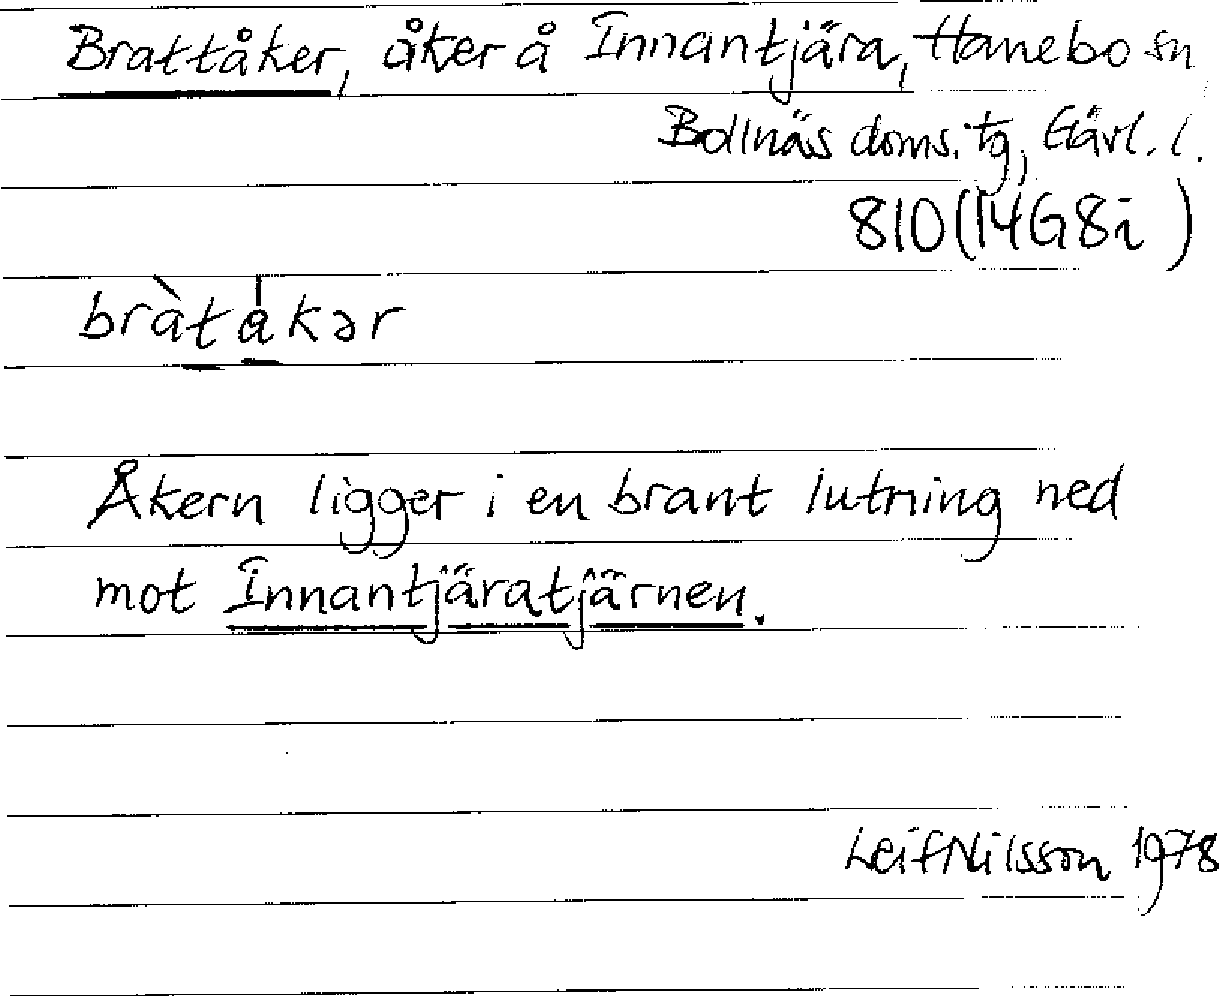 Brattåker, åker å Innantjära, Hanebo sn
Bollnäs doms. tg, Gävl. l.
810 (14G8i )
bràtåkər
Åkern ligger i en brant lutning ned
mot Innantjäratjärnen.
Leif Nilsson 1978